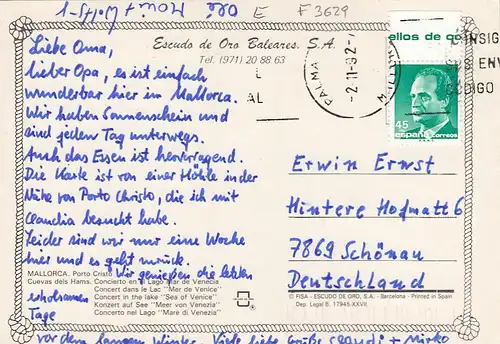 Escudo de Oro Baleares, S.A.
Tel. (971) 20 88 63
E F3629
Liebe Oma,
lieber Opa, es ist einfach
wunderbar hier im Mallorca.
Wir haben Sonnenschein und
sind jeden Tag unterwegs.
Auch das Essen ist hervorragend.
Die Karte ist von einer Höhle in der
Nähe von Porto Christo, die ich mit
Claudia besucht habe.
Leider sind wir nur eine Woche
hier und es geht zurück.
Wir genießen die letzten
erholsamen
Tage
vor dem langen Winter. Viele liebe Grüße Claudi + Mirko
MALLORCA. Porto Cristo
Cuevas dels Hams. Concierto en el Lago Mar de Venecia
Concert dans le Lac "Mer de Venice"
Concert in the lake "Sea of Venice"
Konzert auf See "Meer von Venezia"
Concerto nel Lago "Mare di Venezia"
PALMA
-2.-11-92-
AL
ellos de co
CONSIG
SUS ENV
CODIGO
45
españa correos
Erwin Ernst
Hintere Hofmatt 6
7869 Schönau
Deutschland
© FISA - ESCUDO DE ORO, S.A. - Barcelona - Printed in Spain
Dep. Legal B. 17945-XXVII